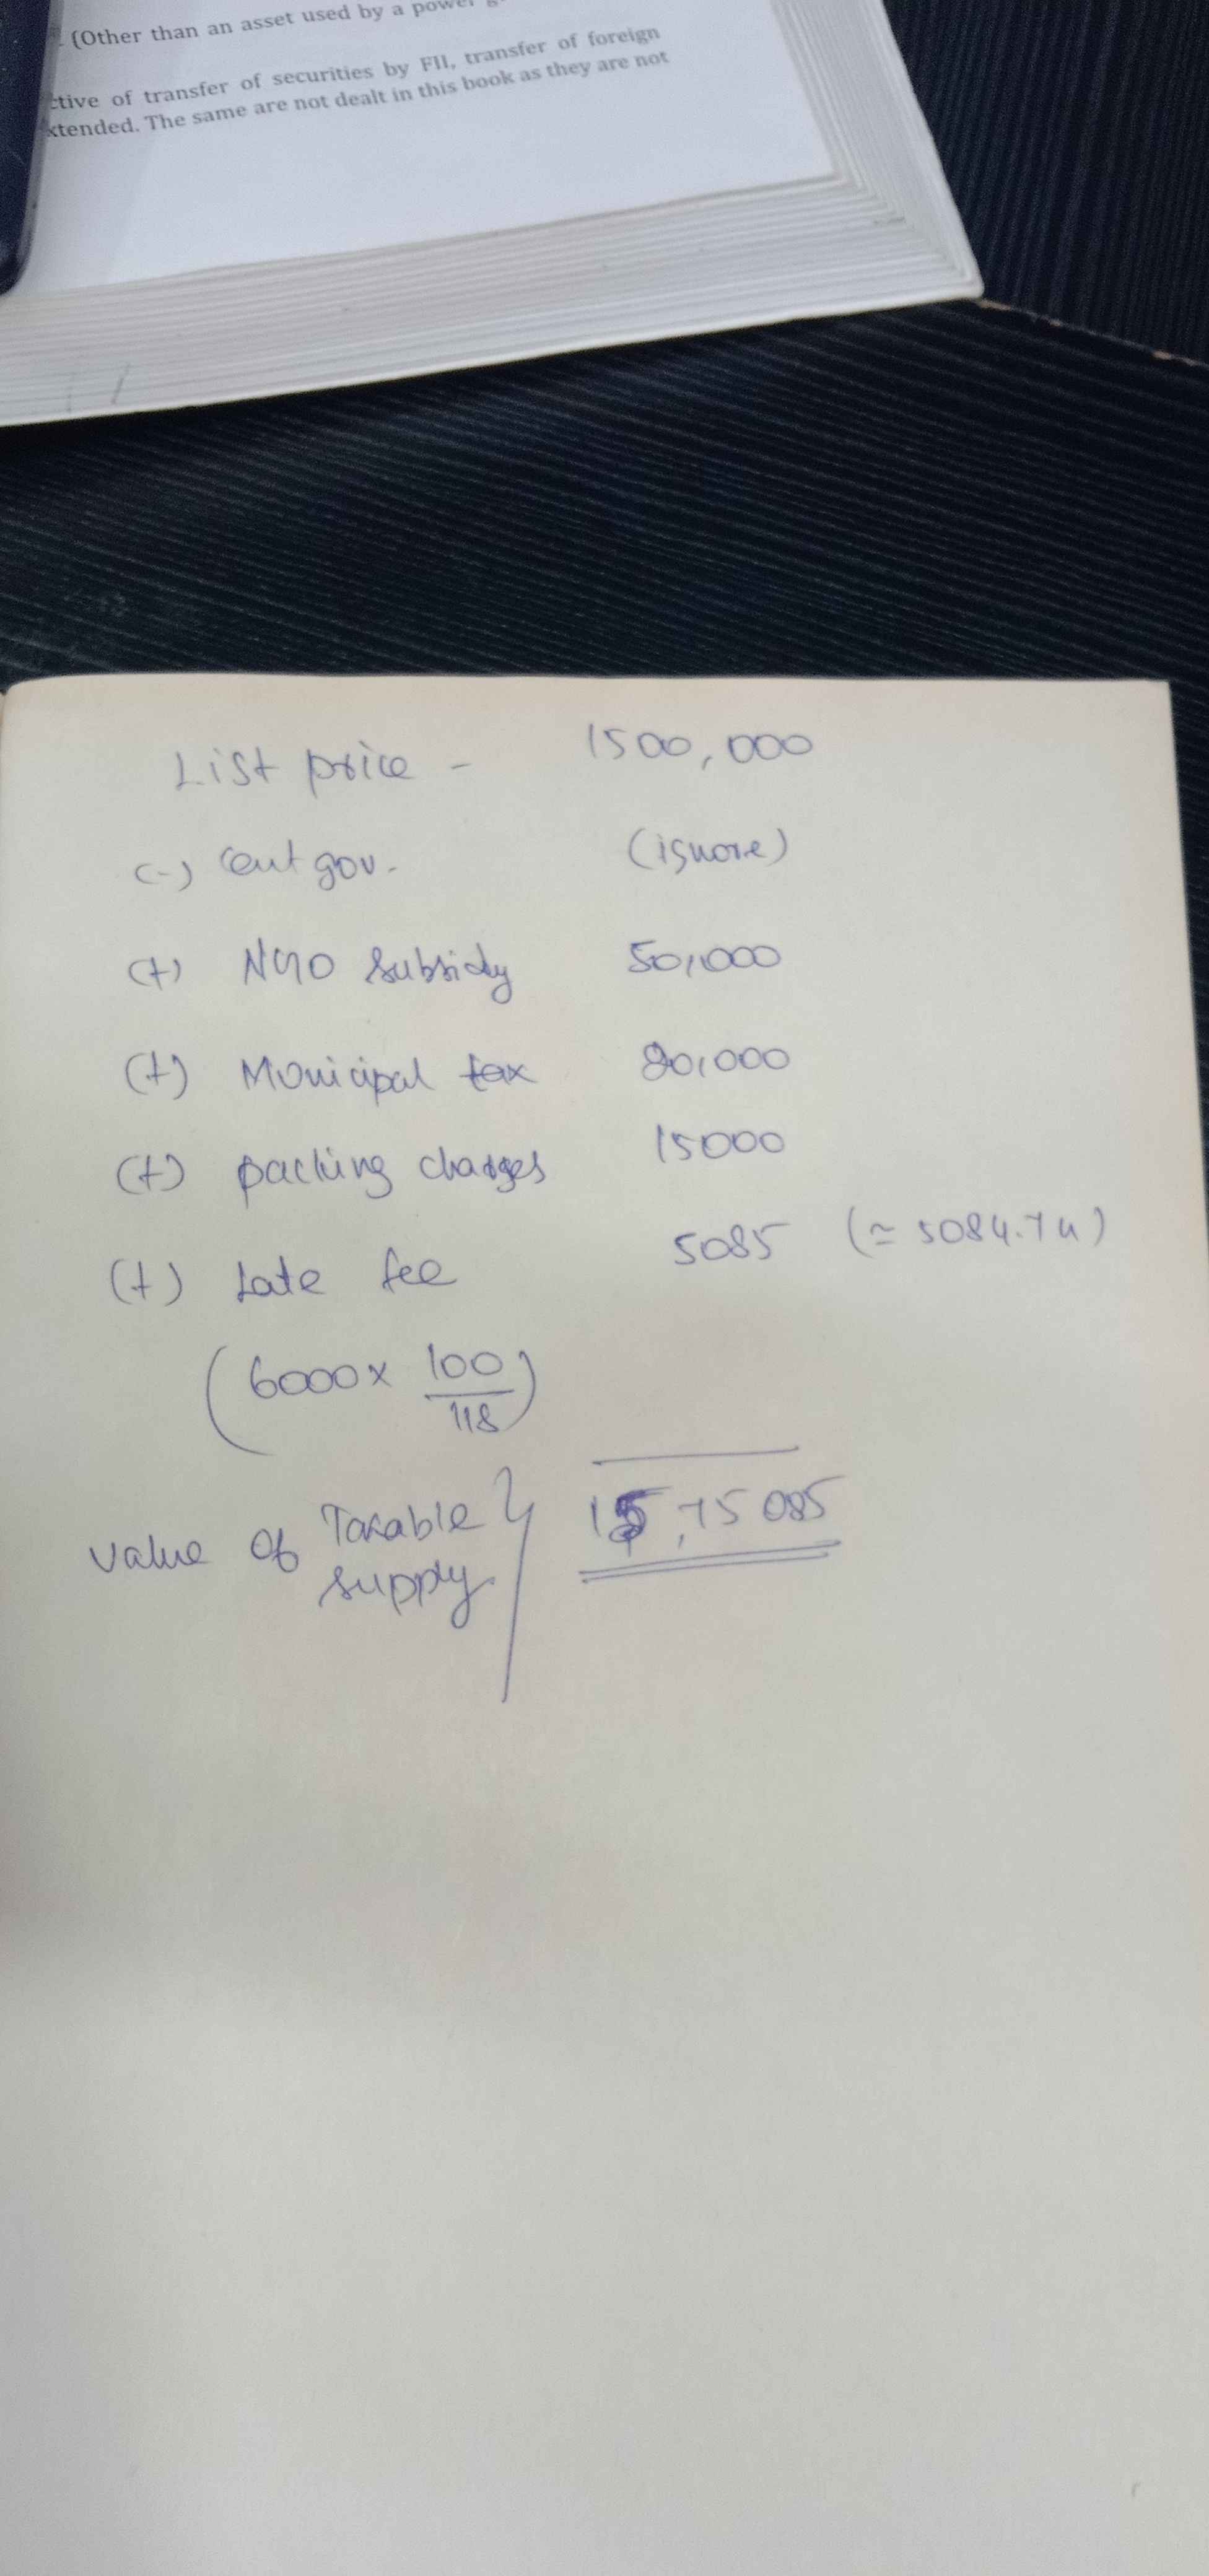 (Other than an asset used by a power
ctive of transfer of securities by FII, transfer of foreign
xtended. The same are not dealt in this book as they are not
List price - 1500,000
(-) Cent gov. (ignore)
(+) NGO Subsidy 50,000
(+) Municipal tax 20,000
(+) packing charges 15000
(+) Late fee 5085 (≈ 5084.74)
(6000 × 100/118)
Value Of Taxable supply 15,75085